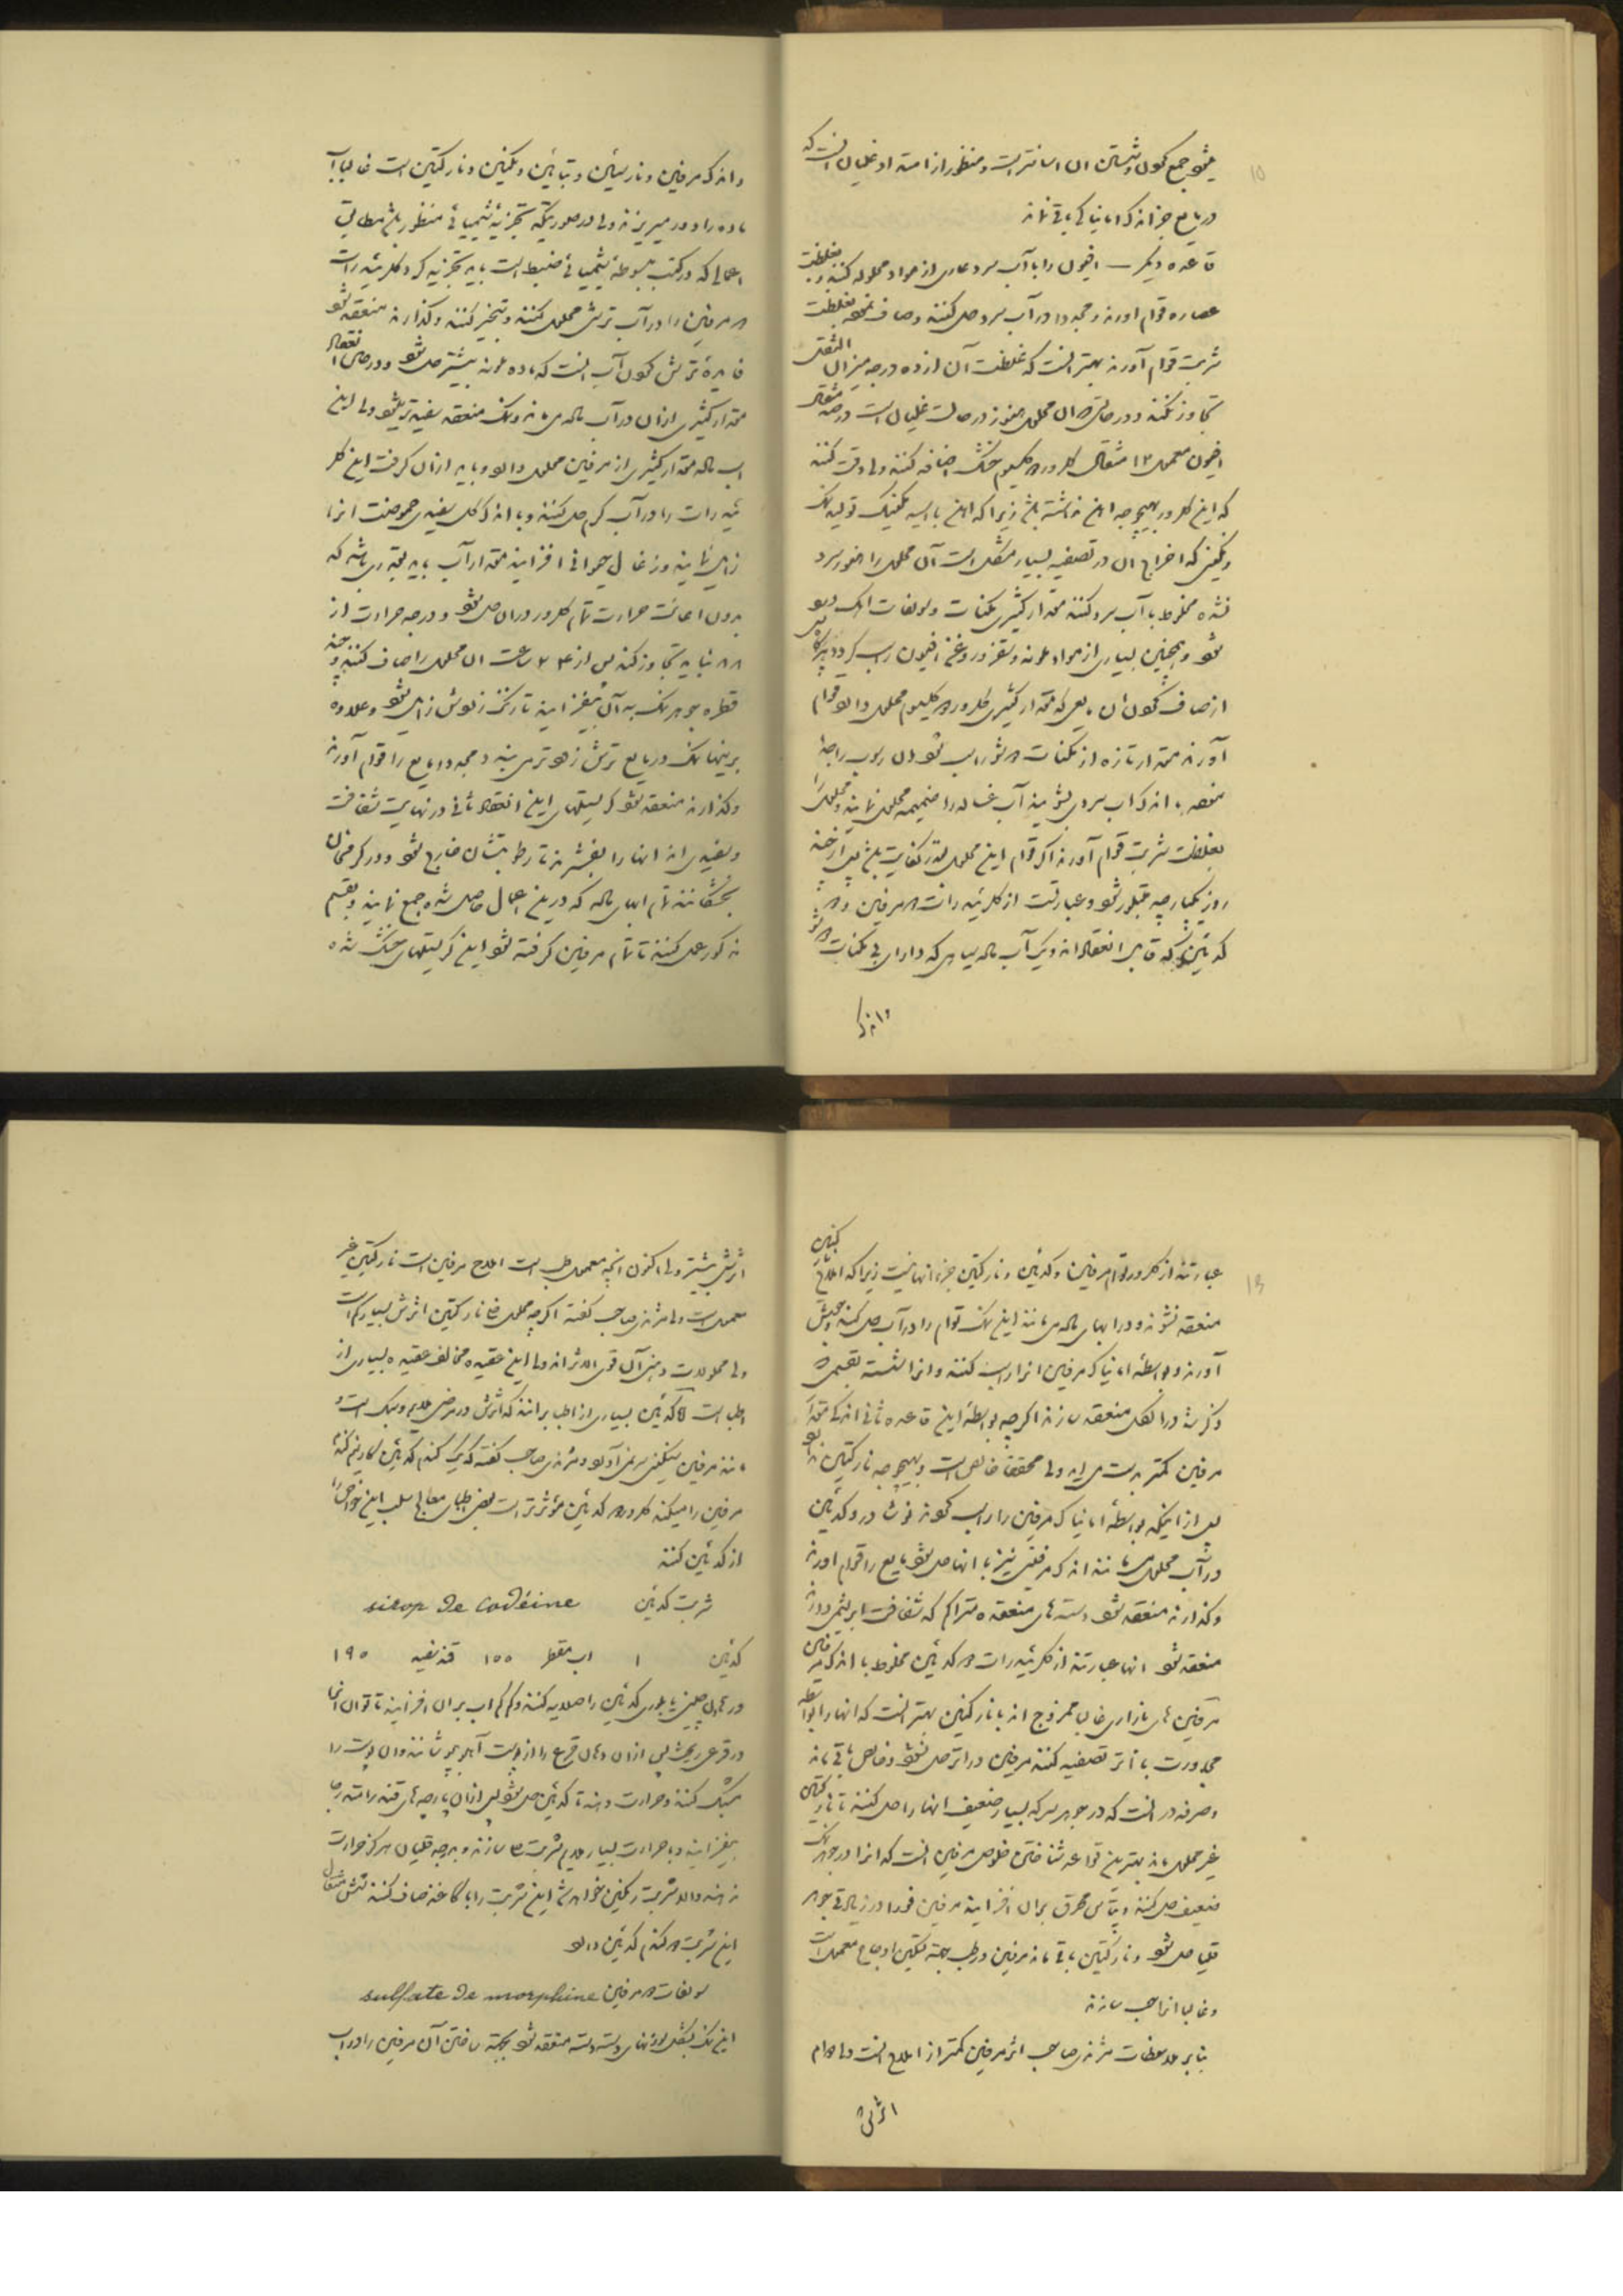 میشود جمع کردن و شستن آن آسانتر است و منظور از امتداد غلیان آنست که
در مایع جز اندک امانیاکی باقی نماند
قاعده دیگر — افیون را با آب سرد عاری از مواد محلوله کنند و بغلظت
عصاره قوام آورند و مجددا در آب سرد حل کنند و صاف نموده بغلظت
شربت قوام آورند بهتر آنست که غلظت آن از ده درجه میزان الثقل
تجاوز نکند و در حالتی که آن محلول هنوز در حالت غلیان است در صد مثقال
افیون معمول ۱۲ مثقال کلرور کلسیم خشک اضافه کنند ولی دقت کنند
که این کلرور بهیچوجه آهن نداشته باشد زیرا که آهن با اسید مکنیک تولید نمک
رنگینی که اخراج آن در تصفیه بسیار مشکل است آن محلول را هنوز سرد
نشده مخلوط با آب سرد کنند مقدار کثیری مکنات و سولفات آهک
شود و همچنین بسیاری از مواد ملونه و تفزر و روغن افیون راسب گردد
از صاف کردن آن مایع که مقدار کثیری کلرور کلسیم محلول دارد قوام
آورند مقدار تازه از مکنات رسوب شود آن رسوب را جدا
نموده با اندک آب سردی بشویند آب غساله را ضمیمه محلول نمایند و محلول را
بغلظت شربت قوام آورند اگر قوام این محلول بقدر کفایت باشد پس از چند
روز یکپارچه متبلور شود و عبارتست از کلریدرات مرفین و
کدئین که قابل انعقاد اند و یک آب ماله سیاهی که دارای بی مکنات
و اندک

و اندک مرفین و نارسئین و تبائین و مکنین و نارکتین است غالبا آب
ماده را دور میریزند ولی در صورتیکه تجزیه شیمیائی منظور باشد مطابق
اعمالی که در کتب مبسوطه شیمیائی ضبط است باید تجزیه کرد کلریدرات
مرفین را در آب ترش محلول کنند و تبخیر کنند و گذارند منعقد شود
فایده ترش کردن آب آنست که ماده ملونه بیشتر حل شود و در حین انعقاد
مقدار کثیری از آن در آب ماله می ماند و نمک منعقد سفیدتر میشود ولی این
آب ماله مقدار کثیری از مرفین محلول دارد و باید از آن گرفت این کلر
یدرات را در آب گرم حل کنند و با اندک گل سفیدی حموضت آنرا
زایل نمایند و زغال حیوانی افزایند مقدار آب باید بقدری باشد که
بدون اعانت حرارت تمام کلرور در آن حل شود و درجه حرارت از
۸۸ نباید تجاوز کند پس از ۲۴ ساعت آن محلول را صاف کنند و چند
قطره جوهر نمک به آن بیفزایند تا رنگ زلوش زایل شود و علاوه
براینها نمک در مایع ترش زودتر می بندد مجددا مایع را قوام آورند
و گذارند منعقد شود کریستلهای این انعقاد ثانی در نهایت شفافیت
و سفیدی اند آنها را بفشرند تا رطوبتشان خارج شود و در گرمخانه
بخشکانند تمام آبهای ماله که در این اعمال حاصل شده جمع نمایند و بقسم
مذکور عمل کنند تا تمام مرفین گرفته شود این کریستلهای خشک شده

عبارتند از کلرور توأم مرفین و کدئین و نارکتین جزء آنها نیست زیرا که املاح نارکتین
منعقد نشوند و در آبهای ماله می مانند این نمک توأم را در آب حل کنند و بجوش
آورند و بواسطه امانیاک مرفین آنرا راسب کنند و آنرا شسته بقسمی که
ذکر شد در الکل منعقد سازند اگرچه بواسطه این قاعده ثانی اندک مقدار
مرفین کمتر بدست می آید ولی محققا خالص است و بهیچوجه نارکتین ندارد
بعد از اینکه بواسطه امانیاک مرفین را راسب کردند نوشادر و کدئین
در آب محلول می مانند اندک مرفینی نیز با آنها حل شود مایع را قوام آورند
و گذارند منعقد شود دسته های منعقده متراکم که شفاف ابریشمی دارند
منعقد شود آنها عبارتند از کلریدرات کدئین مخلوط با اندک مرفین
مرفین های بازاری غالب ممزوج اند با نارکتین بهتر آنست که آنها را بواسطه
مجاورت با اتر تصفیه کنند مرفین در اتر حل نشود و خالص باقی ماند
و صرفه در آنست که در جوهر سرکه بسیار ضعیف آنها را حل کنند تا نارکتین
غیر محلول ماند بهترین قواعد شناختن خلوص مرفین آنست که آنرا در جوهر نمک
ضعیف حل کنند و پتاس محرق بر آن افزایند مرفین فورا در زیادتی جوهر
قلیا حل شود و نارکتین باقی ماند مرفین در طب بجهة تسکین اوجاع معمول است
و غالبا آنرا حب سازند
بنا بر ملاحظات مژندی صاحب اثر مرفین کمتر از املاح آنست ولی دوام
اثرش

اثرش بیشتر ولی اکنون آنچه معمول طب است املاح مرفین است نارکتین غیر
معمول است ولی مژندی صاحب گفته اگرچه محلول نارکتین اثرش بسیار کم است
ولی محمولات دهنی آن قوی الاثر اند ولی این عقیده مخالف عقیده بسیاری از
اطباست اما کدئین بسیاری از اطبا برانند که اثرش در مرض ملایم و سبک است و
مانند مرفین سنگینی سر نمی آورد و مژندی صاحب گفته که یک گندم کدئین کار نیم گندم
مرفین را میکند کلرور کدئین مؤثرتر است بعضی اطبای معالج سلب این خواص را
از کدئین کنند
شربت کدئین sirop de codéine
کدئین ۱ آب مقطر ۱۰۰ قند سفید ۱۹۰
در هاون چینی یا بلوری کدئین را صلایه کنند و کم کم آب بر آن افزایند تا توان آنرا
در قرعی ریخت پس از آن دهان قرع را از پوست آهو بپوشانند و آن پوست را
مشبک کنند و حرارت دهند تا کدئین حل شود پس از آن پارچه های قند را متدرجا
بیفزایند و با حرارت بسیار ملایم شربت سازند و بدرجه غلیان هرگز حرارت
ندهند والا شربت رنگین خواهد شد این شربت را با کاغذ صاف کنند شش مثقال
این شربت دو گندم کدئین دارد
سولفات مرفین sulfate de morphine
این نمک بشکل سوزنهای دسته دسته منعقد شود بجهة ساختن آن مرفین را در آب